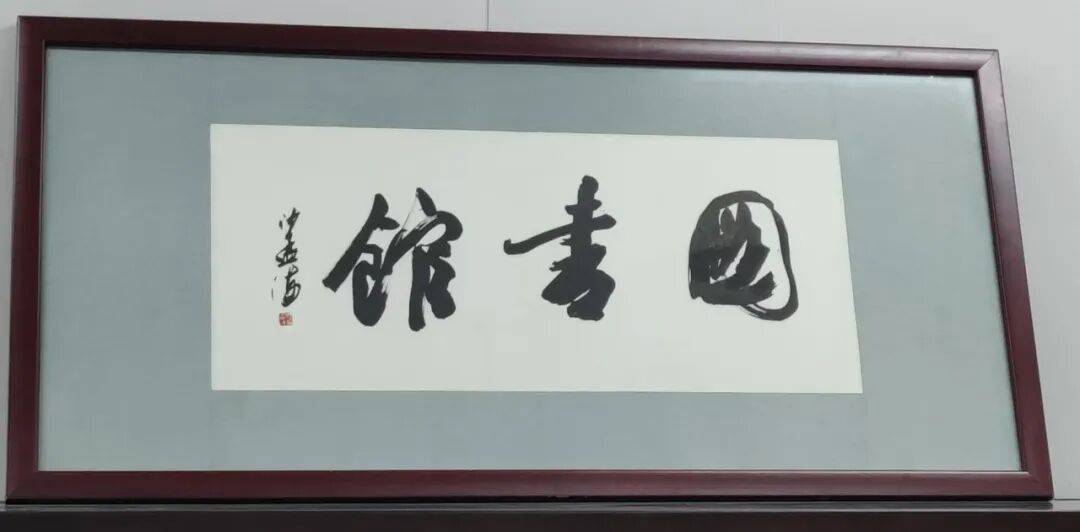 圖書館
沙孟海